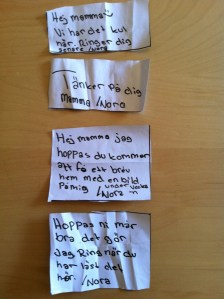 Hej mamma
Vi har det kul
här. Ringer dig
senare /Nora
Tänker på dig
mamma /Nora
Hej mamma jag
hoppas du kommer
att få ett brev
hem med en bild
på mig under vecka
/Nora n
Hoppas ni mår
bra det gör
jag Ring när du
har läst det
här. /Nora